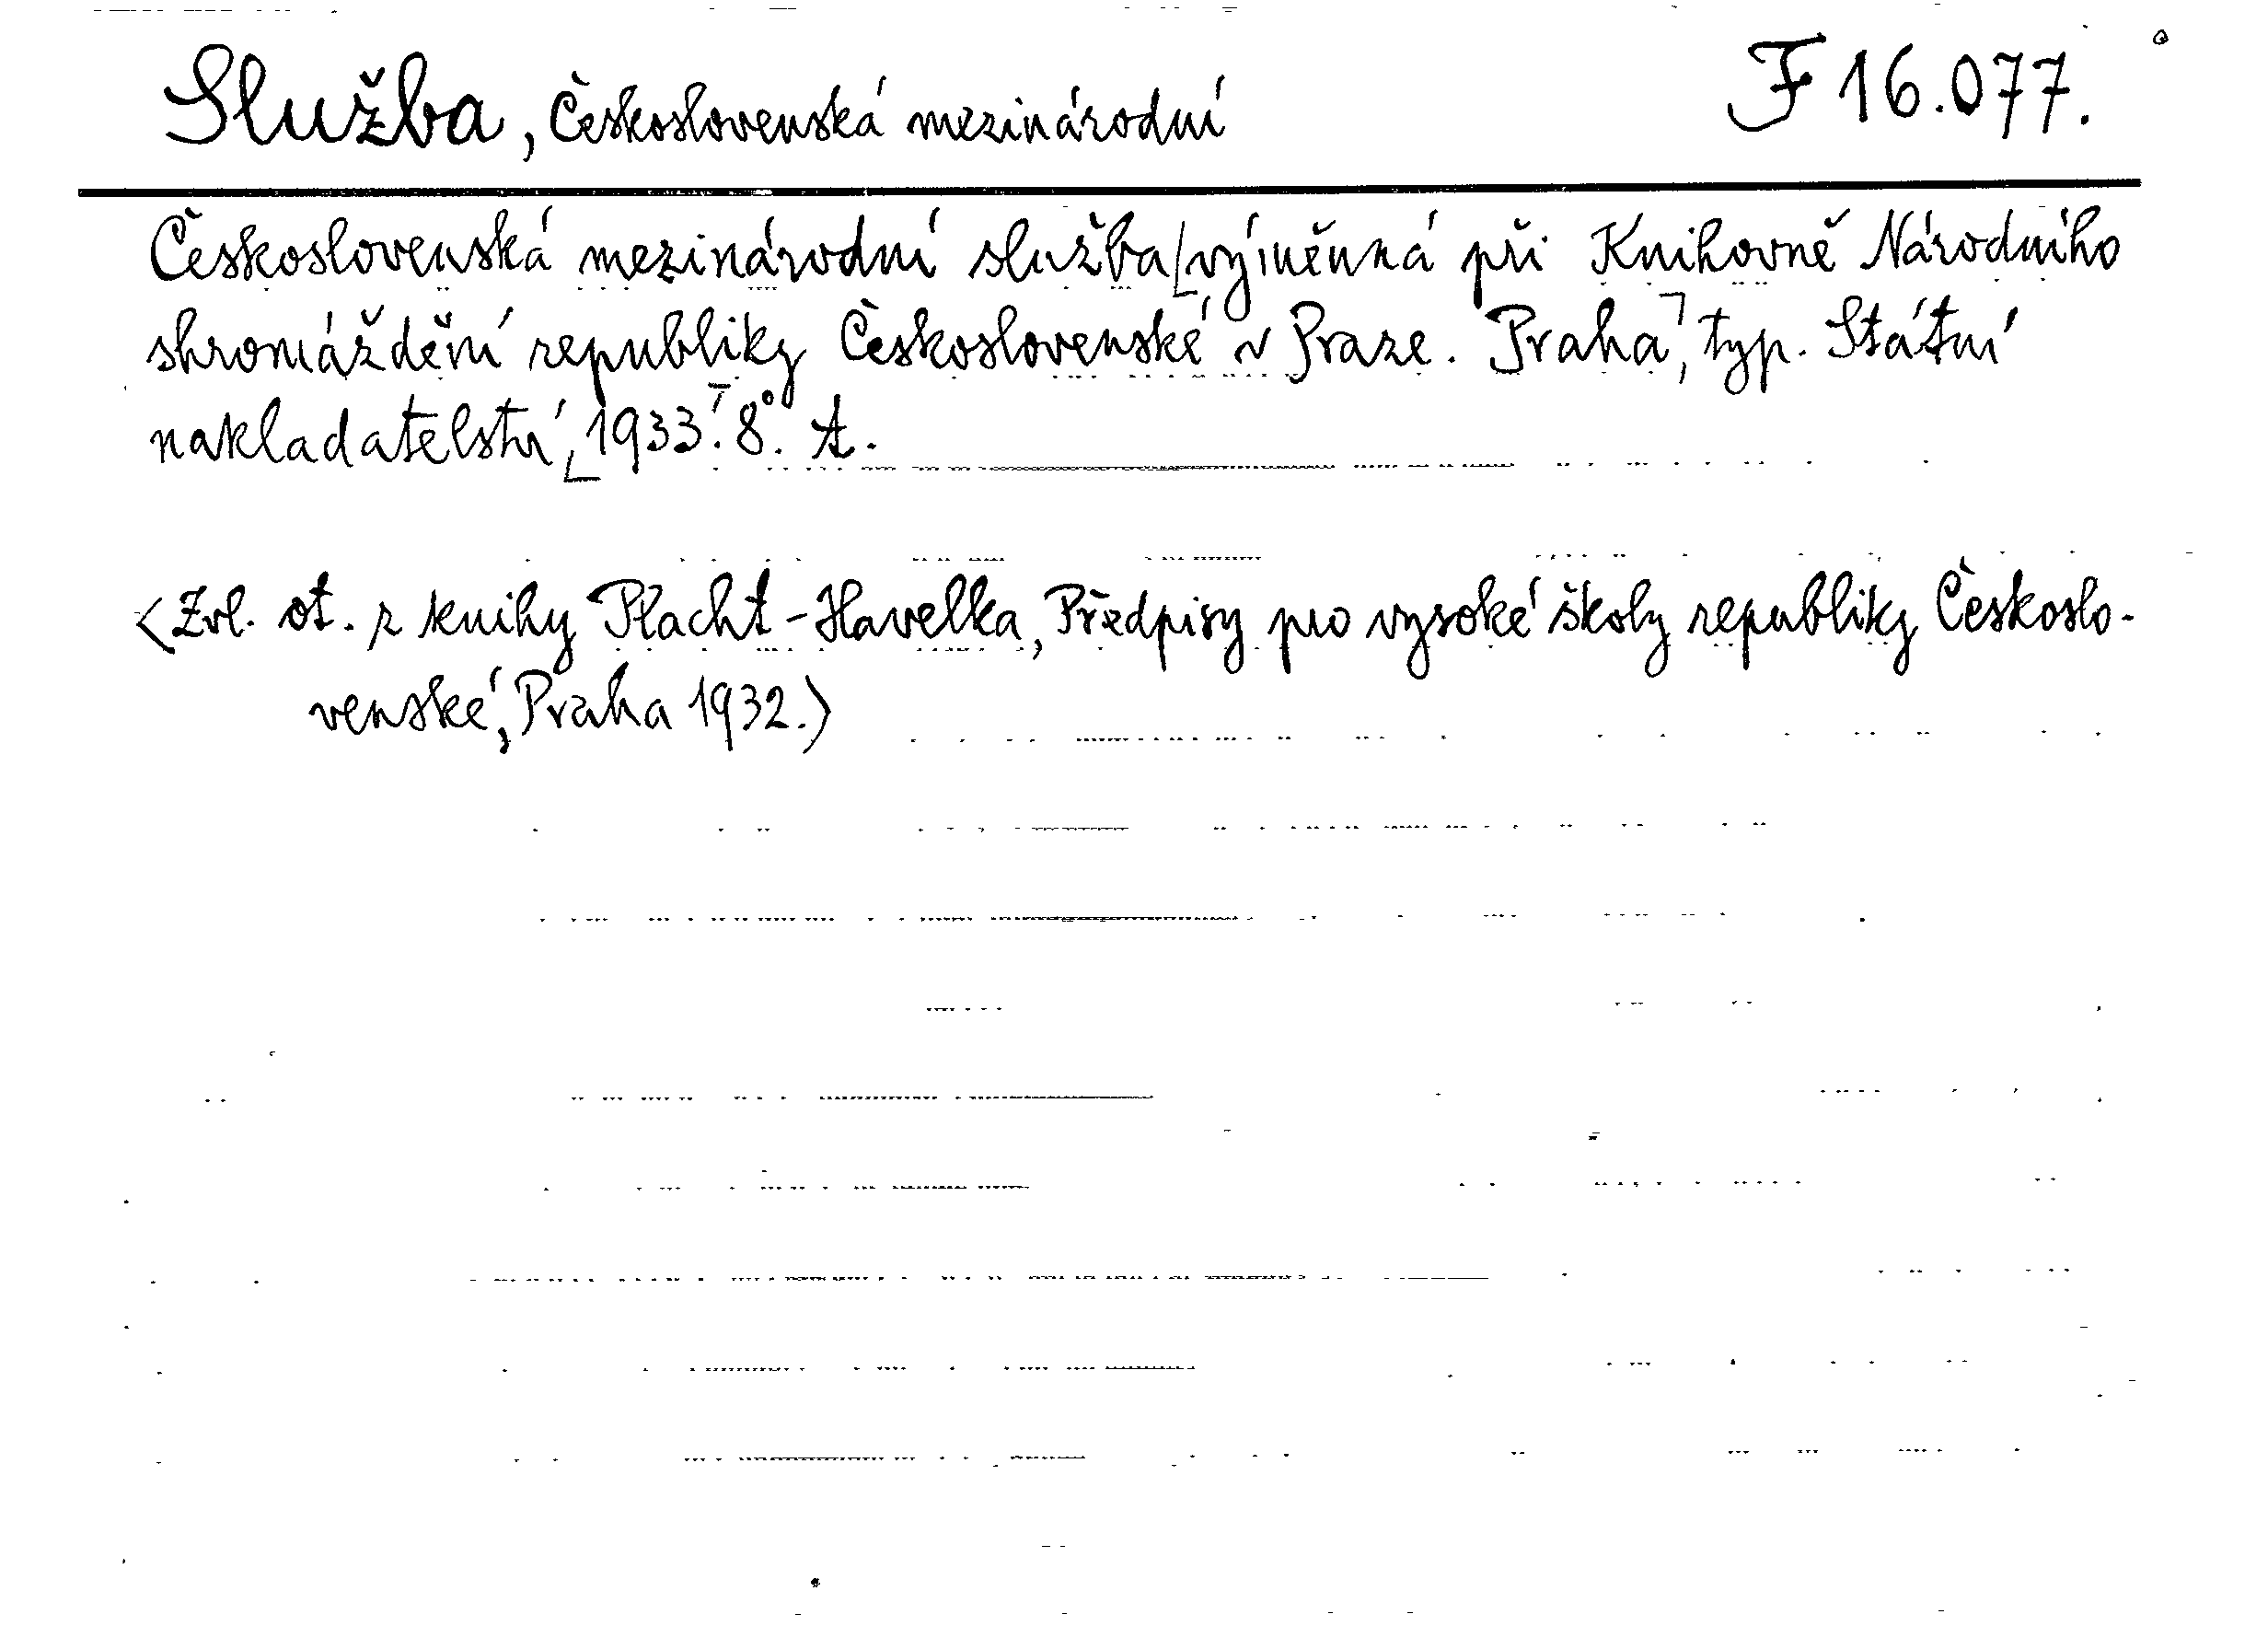 Služba, Československá mezinárodní F 16.077.
Československá mezinárodní služba [výměnná při Knihovně Národního
shromáždění republiky Československé v Praze. Praha], typ. Státní
nakladatelství, [1933]. 8°. t.
<Zvl. ot. z knihy Placht-Havelka, Předpisy pro vysoké školy republiky Českoslo-
venské, Praha 1932.>